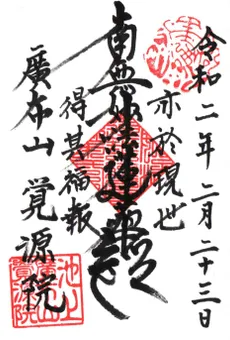 令和二年二月二十三日
亦於現世
南無妙法蓮華経
得其福報
廣布山 覚源院
池上